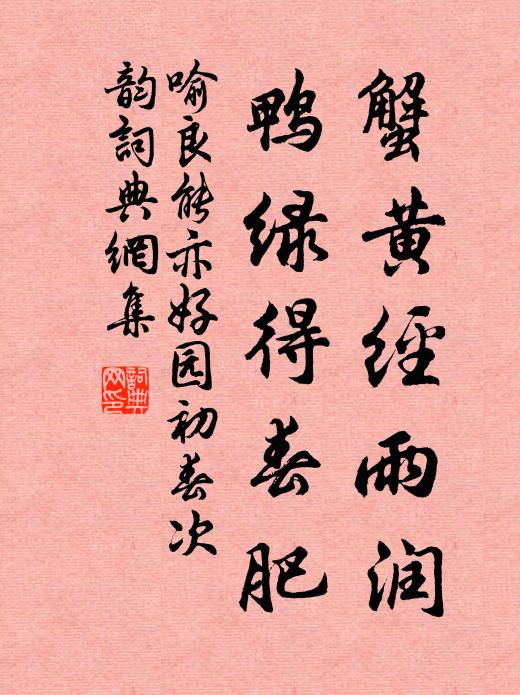 蟹黄經雨润
鸭绿得春肥
喻良能亦好园初春次
韵詞典網集
詞典网印